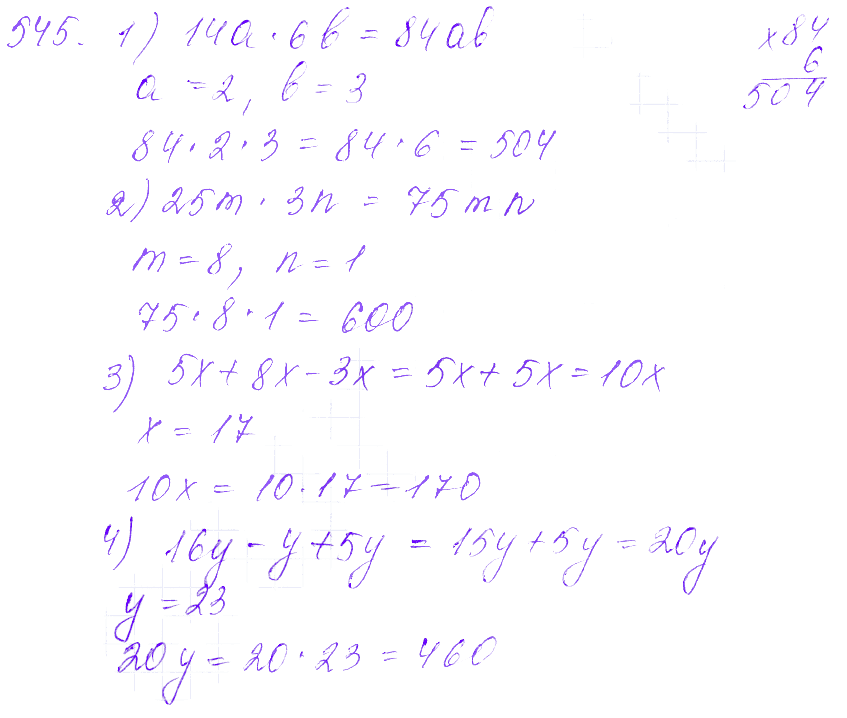 545. 1) 14a · 6b = 84ab
× 84
6
504
a = 2, b = 3
84 · 2 · 3 = 84 · 6 = 504
2) 25m · 3n = 75mn
m = 8, n = 1
75 · 8 · 1 = 600
3) 5x + 8x - 3x = 5x + 5x = 10x
x = 17
10x = 10 · 17 = 170
4) 16y - y + 5y = 15y + 5y = 20y
y = 23
20y = 20 · 23 = 460